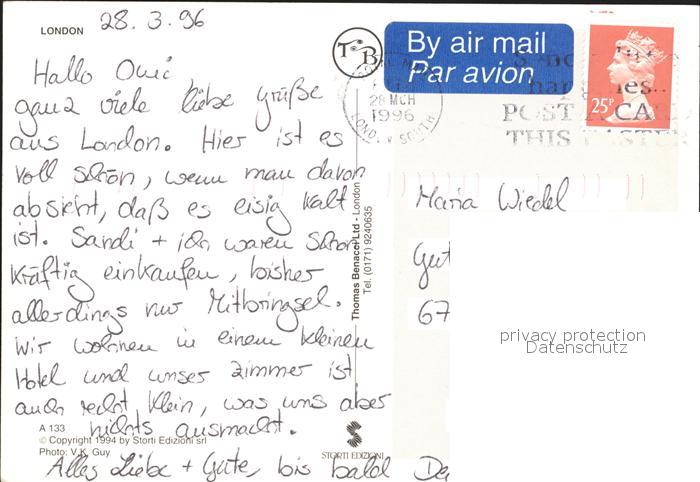 LONDON
28.3.96
Hallo Omi,
ganz viele liebe Grüße
aus London. Hier ist es
voll schön, wenn man davon
absieht, daß es eisig kalt
ist. Sandi + ich waren schon
kräftig einkaufen, bisher
allerdings nur Mitbringsel.
Wir wohnen in einem kleinen
Hotel und unser Zimmer ist
auch recht klein, was uns aber
nichts ausmacht.
Alles Liebe + Gute, bis bald
A 133
© Copyright 1994 by Storti Edizioni srl
Photo: V.K. Guy
Thomas Benacci Ltd - London
Tel. (0171) 9240635
STORTI EDIZIONI
TB
By air mail
Par avion
28 MCH
1996
LONDON SOUTH
POST A CARD
THIS EASTER
25P
Maria Wiedel
Gut
67
privacy protection
Datenschutz